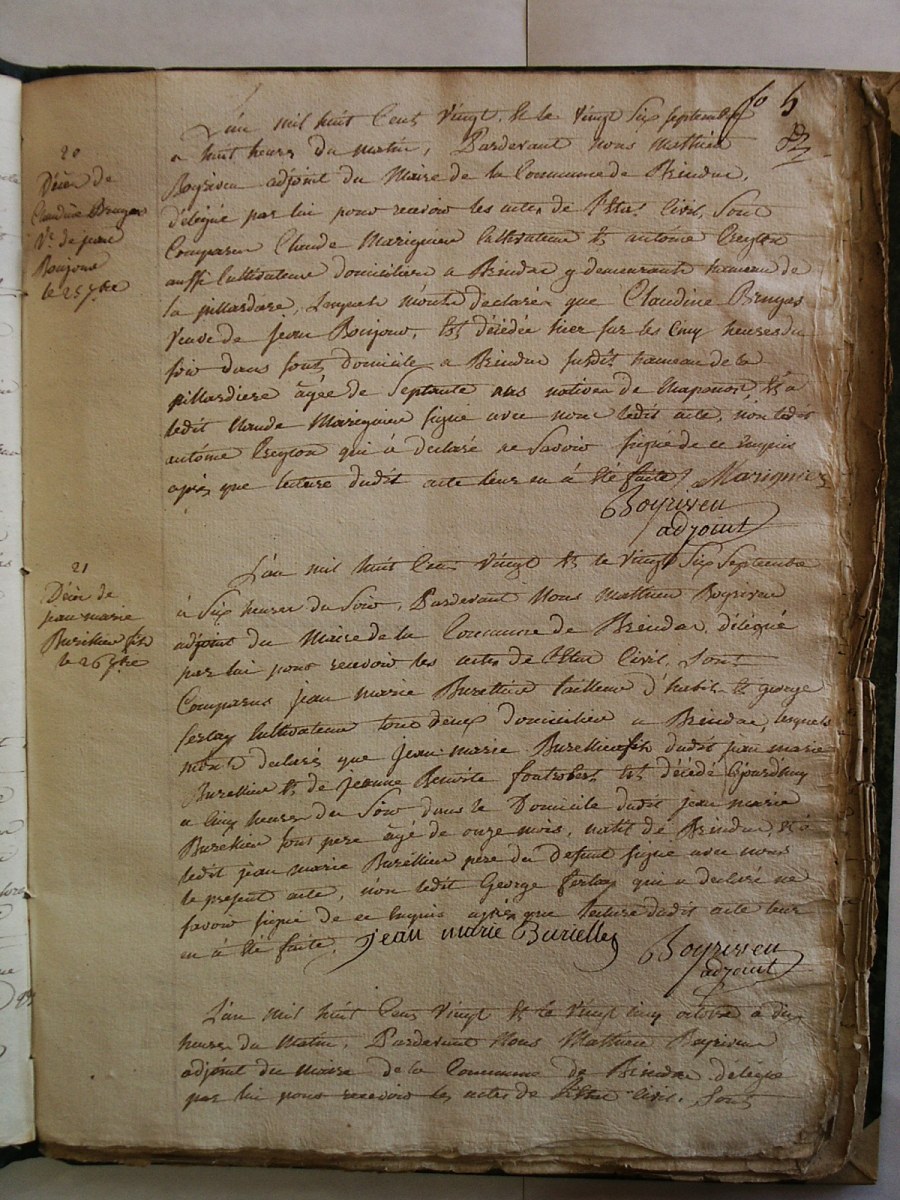 fo 5
L'an mil huit Cent vingt, et le vingt Six septembre
a huit heures du matin, Pardevant nous Mathieu
Boyriven adjoint du Maire de la Commune de Brindas,
délégué par lui pour recevoir les actes de l'Etat Civil, Sont
Comparu Claude Marignier Cultivateur et antoine Creyton
aussi Cultivateur domiciliés a Brindas y demeurants hameau de
la pillardiere, Lesquels m'ont declaré que Claudine Bruyas
Veuve de jean Bonjour, Est décédée hier sur les Cinq heures du
soir dans son domicile a Brindas susdit hameau de la
pillardiere âgée de Septante ans native de Chaponost, et a
ledit Claude Marignier signé avec nous ledit acte, non ledit
antoine Creyton qui à declaré ne Savoir signé de ce Enquis
après que lecture dudit acte leur en à été faite / Marignier
Boyriven
adjoint
20
Décès de
Claudine Bruyas
Ve. de jean
Bonjour
le 25 7bre
L'an mil huit Cent vingt et le vingt Six Septembre
à Six heures du Soir, Pardevant Nous Mathieu Boyriven
adjoint du Maire de la Commune de Brindas, délégué
par lui pour recevoir les actes de l'Etat Civil, Sont
Comparus jean marie Burellier tailleur d'habits et george
ferlay Cultivateur tous deux domiciliés a Brindas, lesquels
m'ont declaré que jean-marie Burellier fils dudit jean marie
Burellier et de jeanne Benoite est décédé
a Cinq heures du Soir dans le Domicile dudit jean marie
Burellier son pere âgé de onze mois, natif de Brindas, et à
ledit jean marie Burellier pere du defunt signé avec nous
le present acte, non ledit George ferlay qui a declaré ne
savoir signé de ce Enquis après que lecture dudit acte leur
en à été faite. jean marie Burellier
Boyriven
adjoint
21
Décès de
jean marie
Burellier fils
le 26 7bre
L'an mil huit Cent vingt et le vingt cinq octobre à dix
heures du Matin, Pardevant Nous Mathieu Boyriven
adjoint du maire de la Commune de Brindas délégué
par lui pour recevoir les actes de l'Etat civil, Sont